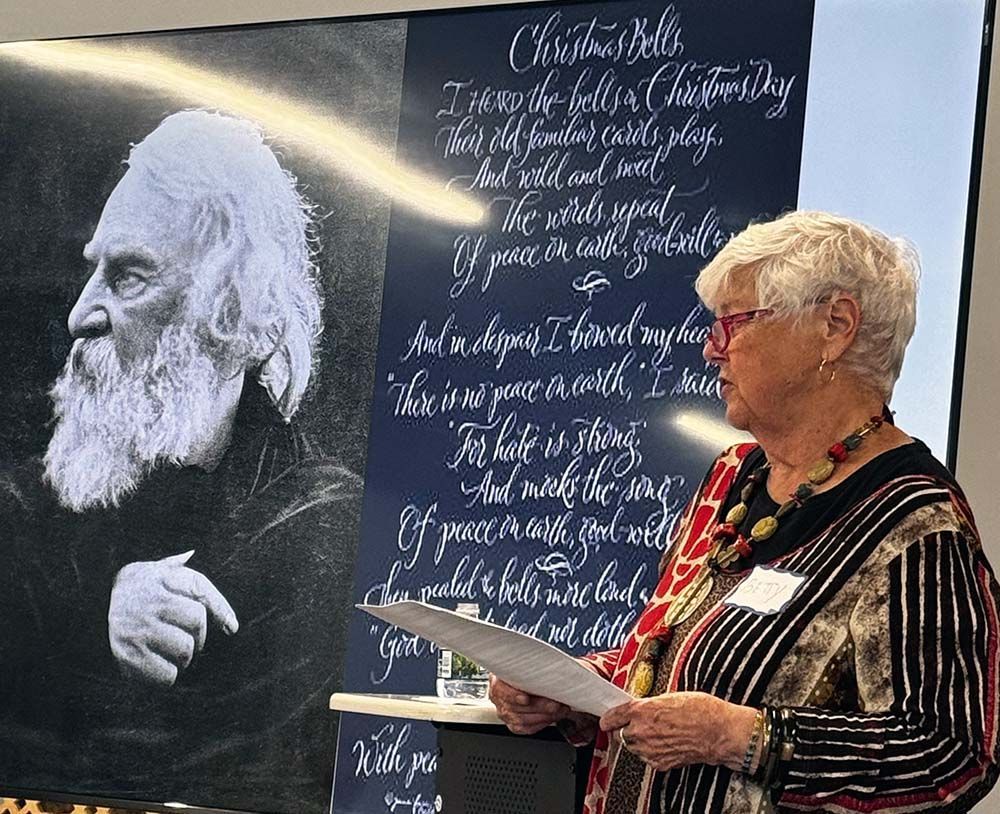 Christmas Bells
I HEARD the bells on Christmas Day
Their old, familiar carols play,
And wild and sweet
The words repeat
Of peace on earth, good-will
And in despair I bowed my hea
"There is no peace on earth," I said
"For hate is strong,
And mocks the song
Of peace on earth, good-will
Then pealed the bells more loud
"God nor doth
With pea
BETTY